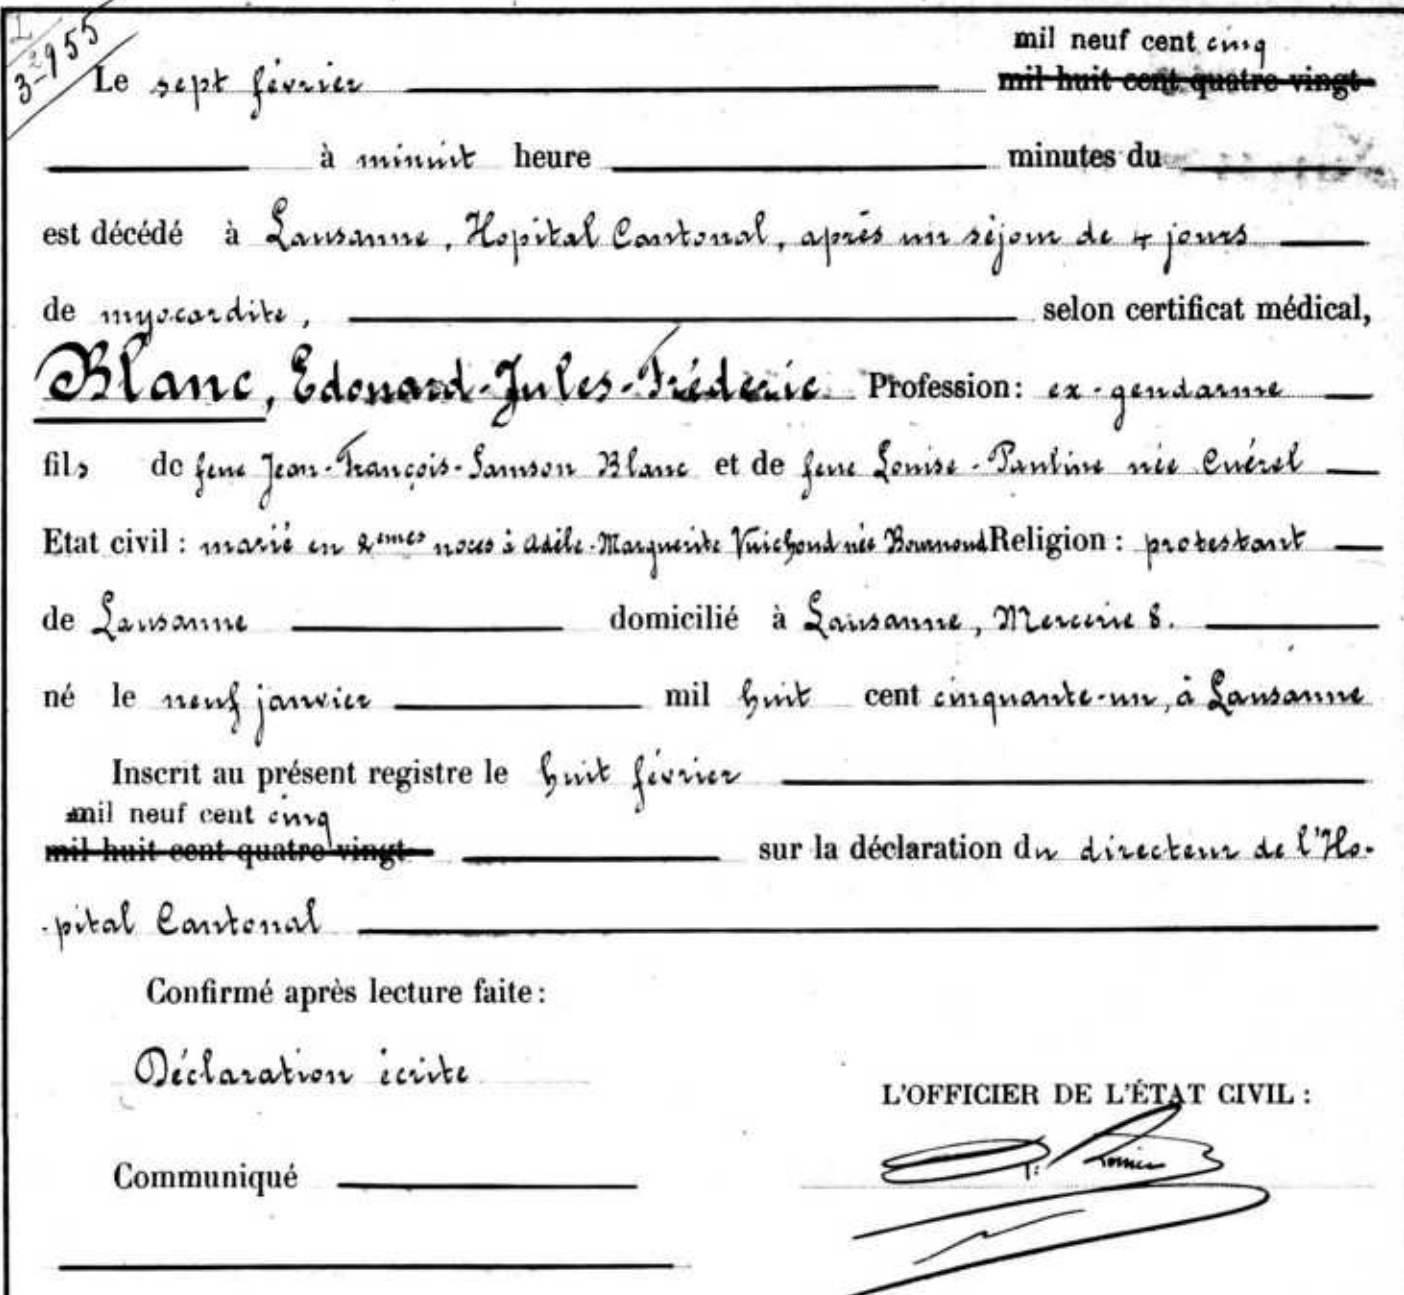 3-955
mil neuf cent cinq
Le sept février mil huit cent quatre-vingt
à minuit heure minutes du
est décédé à Lausanne, Hopital Cantonal, après un séjour de 4 jours
de myocardite, selon certificat médical,
Blanc, Edouard-Jules-Fréderic Profession: ex-gendarme
fils de feue Jean-François-Samson Blanc et de feue Louise-Pauline née Cuérel
Etat civil: marié en 2emes noces à Adèle-Marguerite Vuichoud née Bournoud Religion: protestant
de Lausanne domicilié à Lausanne, Mercerie 8.
né le neuf janvier mil huit cent cinquante-un, à Lausanne
Inscrit au présent registre le huit février
mil neuf cent cinq
mil huit cent quatre vingt sur la déclaration du directeur de l'Ho-
-pital Cantonal
Confirmé après lecture faite:
Déclaration écrite
L'OFFICIER DE L'ÉTAT CIVIL:
Communiqué